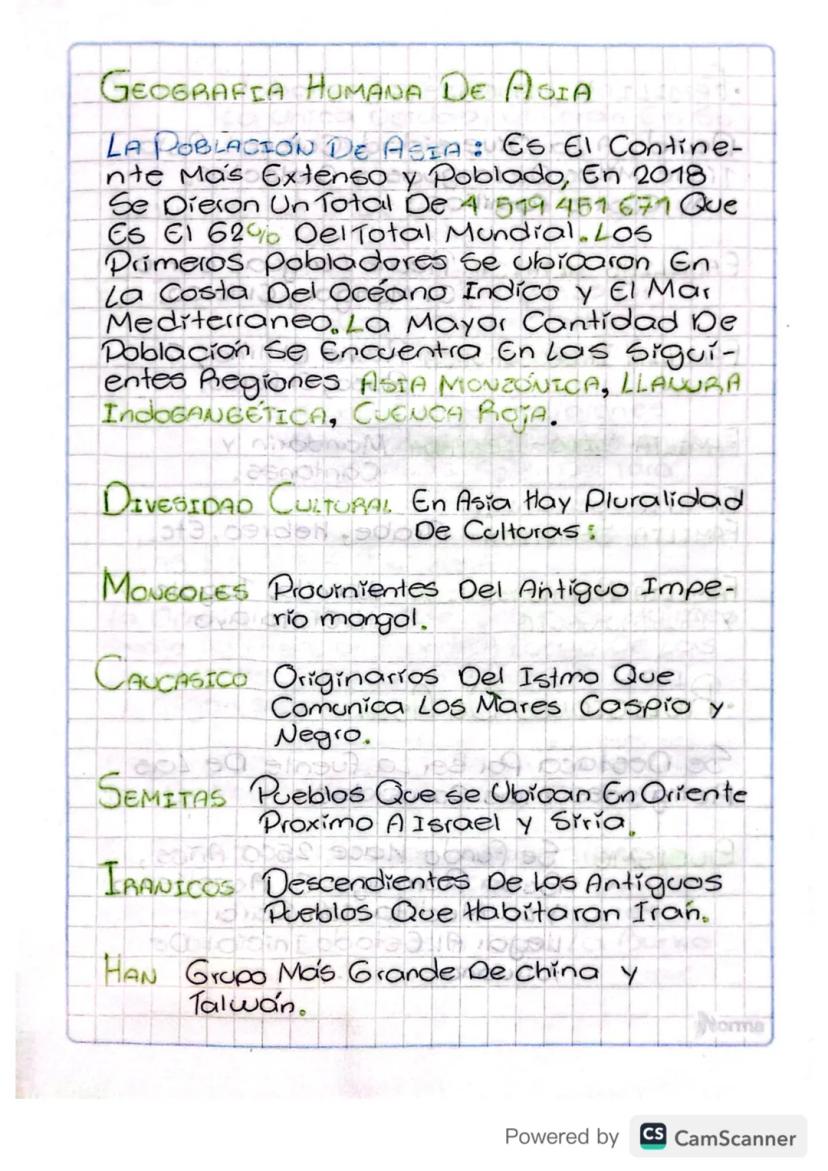 GEOGRAFIA HUMANA DE ASIA
LA POBLACIÓN DE ASIA: Es El Contine-
nte Más Extenso y Poblado, En 2018
Se Dieron Un Total De 4 519 451 671 Que
Es El 62% Del Total Mundial. Los
Primeros Pobladores Se Ubicaron En
La Costa Del Océano Indico y El Mar
Mediterraneo. La Mayor Cantidad De
Población Se Encuentra En Las Sigui-
entes Regiones ASIA MONZÓNICA, LLANURA
INDOGANGÉTICA, CUENCA ROJA.
DIVESIDAD CULTURAL En Asia Hay Pluralidad
De Culturas:
MONGOLES Provinientes Del Antiguo Impe-
rio mongol.
CAUCASICO Originarios Del Istmo Que
Comunica Los Mares Caspio y
Negro.
SEMITAS Pueblos Que se Ubican En Oriente
Proximo A Israel y Siria.
IRANICOS Descendientes De Los Antiguos
Pueblos Que Habitaron Irán.
HAN Grupo Más Grande De China y
Taiwán.
Norma
Powered by CS CamScanner